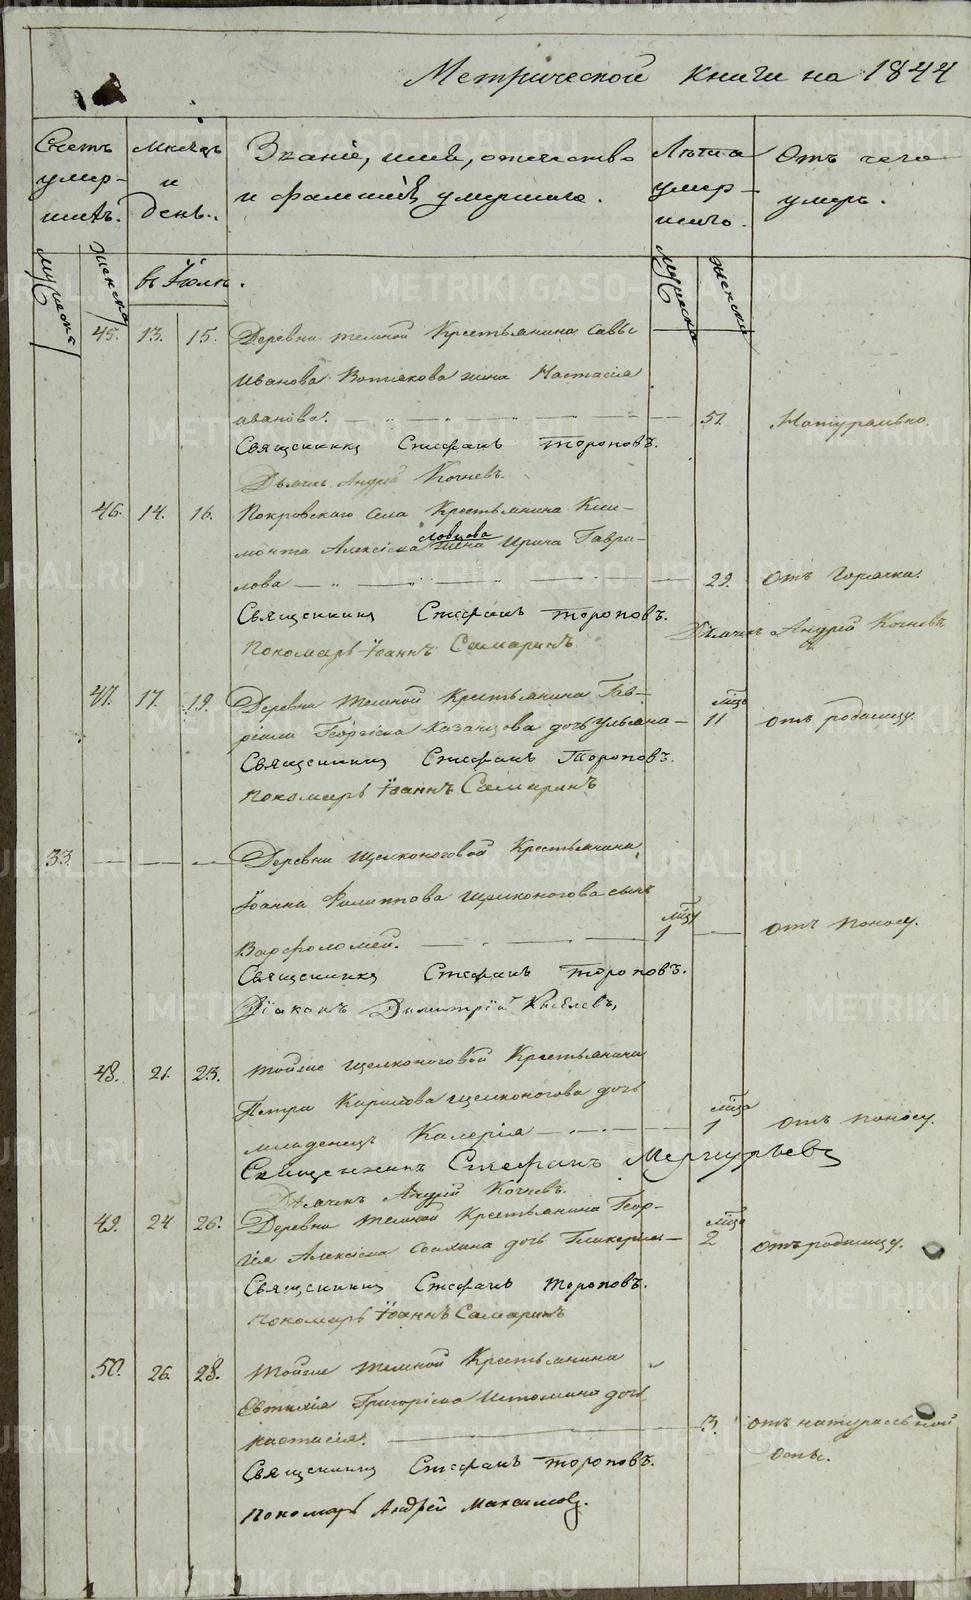 Метрической книги на 1844
Счетъ умер- шихъ. Мѣсяцъ и день. Званіе, имя, отечество и фамилія умершаго. Лѣта умер- шаго. Отъ чего умеръ.
мужеска женска въ Іюлѣ. мужеска женска
45. 13. 15. Деревни Темной Крестьянина Савы
Иванова Вотякова жена Настасія
Иванова. 51. Натурально.
Священникъ Стефанъ Тороповъ.
Дьячекъ Андрей Кочневъ.
46. 14. 16. Покровскаго села Крестьянина Кли-
ловцова
монта Алексіева жена Ирина Гаври-
лова 29. Отъ Горячки.
Священникъ Стефанъ Тороповъ. Дьячекъ Андрей Кочневъ.
Пономарь Іоаннъ Самаринъ
47. 17. 19. Деревни Темной Крестьянина Гав-
ріила Георгіева Казанцова дочь Ульяна мца 11 отъ родимцу.
Священникъ Стефанъ Тороповъ.
Пономарь Іоаннъ Самаринъ
33. Деревни Щелконоговой Крестьянина
Іоанна Филиппова Щелконогова сынъ
Варфоломей. мцъ 1 отъ поносу.
Священникъ Стефанъ Тороповъ.
Діаконъ Димитрій Киселевъ,
48. 21. 23. Тойже Щелконоговой Крестьянина
Петра Кирилова Щелконогова дочь
младенецъ Калерія мца 1 отъ поносу.
Священникъ Стефанъ Меркурьевъ
Дьячекъ Андрей Кочневъ.
49. 24 26. Деревни Темной Крестьянина Геор-
гія Алексіева дочь Гликерія мца 2 отъ родимцу.
Священникъ Стефанъ Тороповъ.
Пономарь Іоаннъ Самаринъ
50. 26 28. Тойже Темной Крестьянина
Евтихія Григоріева Истомина дочь
Настасія. 3. отъ натуральной
оспы.
Священникъ Стефанъ Тороповъ.
Пономарь Андрей Максимовъ.
METRIKI.GASO-URAL.RU